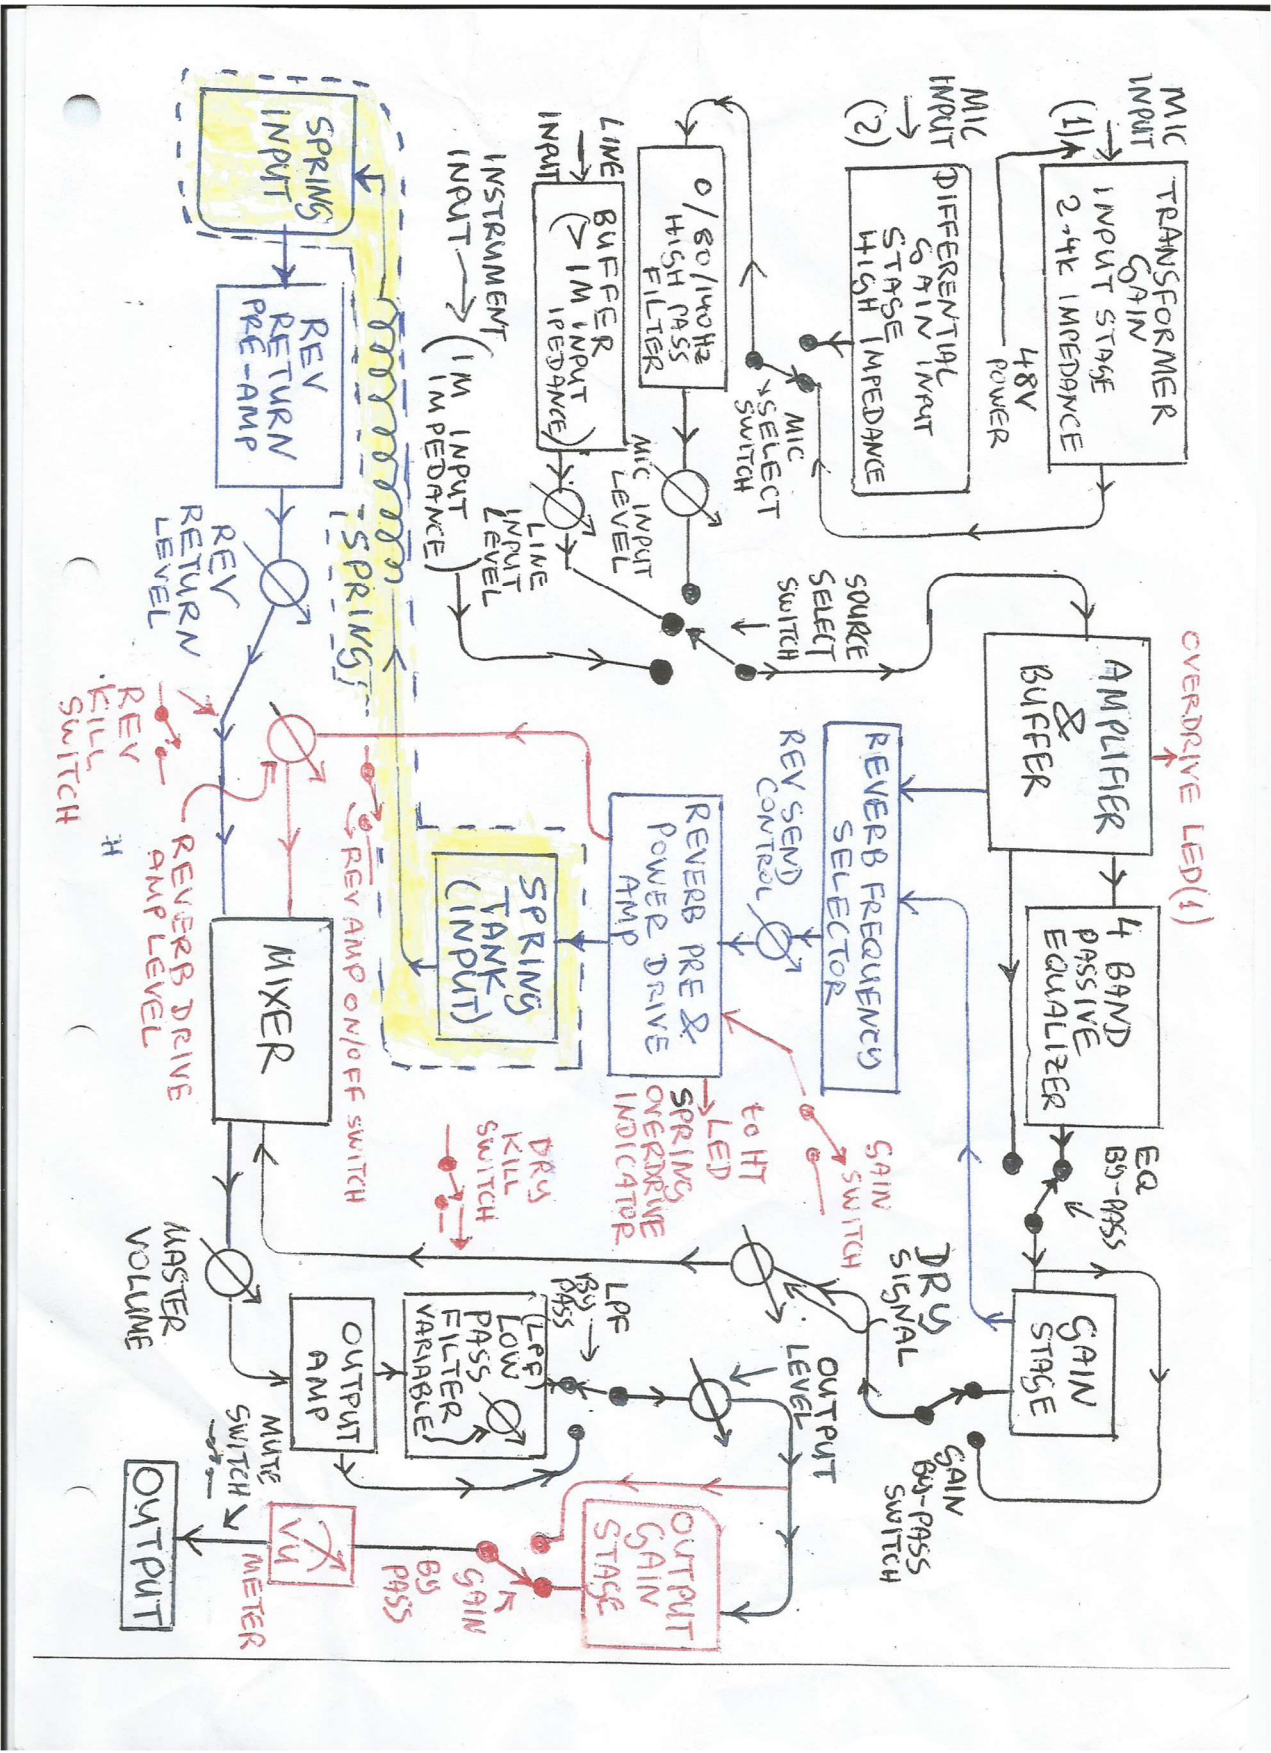 MIC
INPUT
(1)
TRANSFORMER
GAIN
INPUT STAGE
2.4K IMPEDANCE
48V
POWER
MIC
INPUT
(2)
DIFFERENTIAL
GAIN INPUT
STAGE
HIGH IMPEDANCE
MIC
SELECT
SWITCH
0/80/140Hz
HIGH PASS
FILTER
MIC INPUT
LEVEL
LINE
INPUT
BUFFER
(> 1M INPUT
IPEDANCE)
LINE
INPUT
LEVEL
INSTRUMENT
INPUT
(1M INPUT
IMPEDANCE)
SOURCE
SELECT
SWITCH
OVERDRIVE LED(1)
AMPLIFIER
&
BUFFER
4 BAND
PASSIVE
EQUALIZER
EQ
BY-PASS
GAIN
STAGE
GAIN
BY-PASS
SWITCH
DRY
SIGNAL
REVERB FREQUENCY
SELECTOR
REV SEND
CONTROL
REVERB PRE &
POWER DRIVE
AMP
GAIN
SWITCH
to HT
LED
SPRING
OVERDRIVE
INDICATOR
SPRING
TANK
(INPUT)
SPRING
SPRING
INPUT
REV
RETURN
PRE-AMP
REV
RETURN
LEVEL
REV
KILL
SWITCH
H
REV AMP ON/OFF SWITCH
REVERB DRIVE
AMP LEVEL
MIXER
DRY
KILL
SWITCH
MASTER
VOLUME
OUTPUT
AMP
(LPF)
LOW
PASS
FILTER
VARIABLE)
LPF
BY
PASS
OUTPUT
LEVEL
OUTPUT
GAIN
STAGE
GAIN
BY
PASS
VU
METER
MUTE
SWITCH
OUTPUT